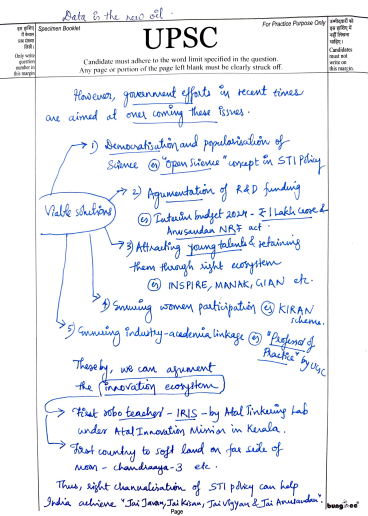 Data is the new oil.
इस हाशिए में केवल प्रश्न संख्या लिखें।
Only write question number in this margin
Specimen Booklet
For Practice Purpose Only
उम्मीदवारों को इस हाशिए में नहीं लिखना चाहिए।
Candidates must not write on this margin.
UPSC
Candidate must adhere to the word limit specified in the question.
Any page or portion of the page left blank must be clearly struck off.
However, government efforts in recent times
are aimed at over coming these issues.
Viable solutions
1) Democratisation and popularisation of
Science eg "Open Science" concept in STI Policy
2) Agumentation of R&D funding
eg Interim budget 2024 - ₹1 Lakh crore &
Anusandan NRF act.
3) Attracting young talents & retaining
them through right ecosystem
eg INSPIRE, MANAK, GIAN etc.
4) Ensuring women participation eg KIRAN
scheme.
5) Ensuring industry-acedemia linkage eg "Professor of
Practice" by UGC
Thereby, we can agument
the innovation ecosystem
First robo teacher - IRIS - by Atal Tinkering Lab
under Atal Innovation Mission in Kerala.
First country to soft land on far side of
moon - chandraaya-3 etc.
Thus, right channalisation of STI policy can help
India achieve "Jai Javan, Jai Kisan, Jai Vigyan & Jai Anusandan".
Page